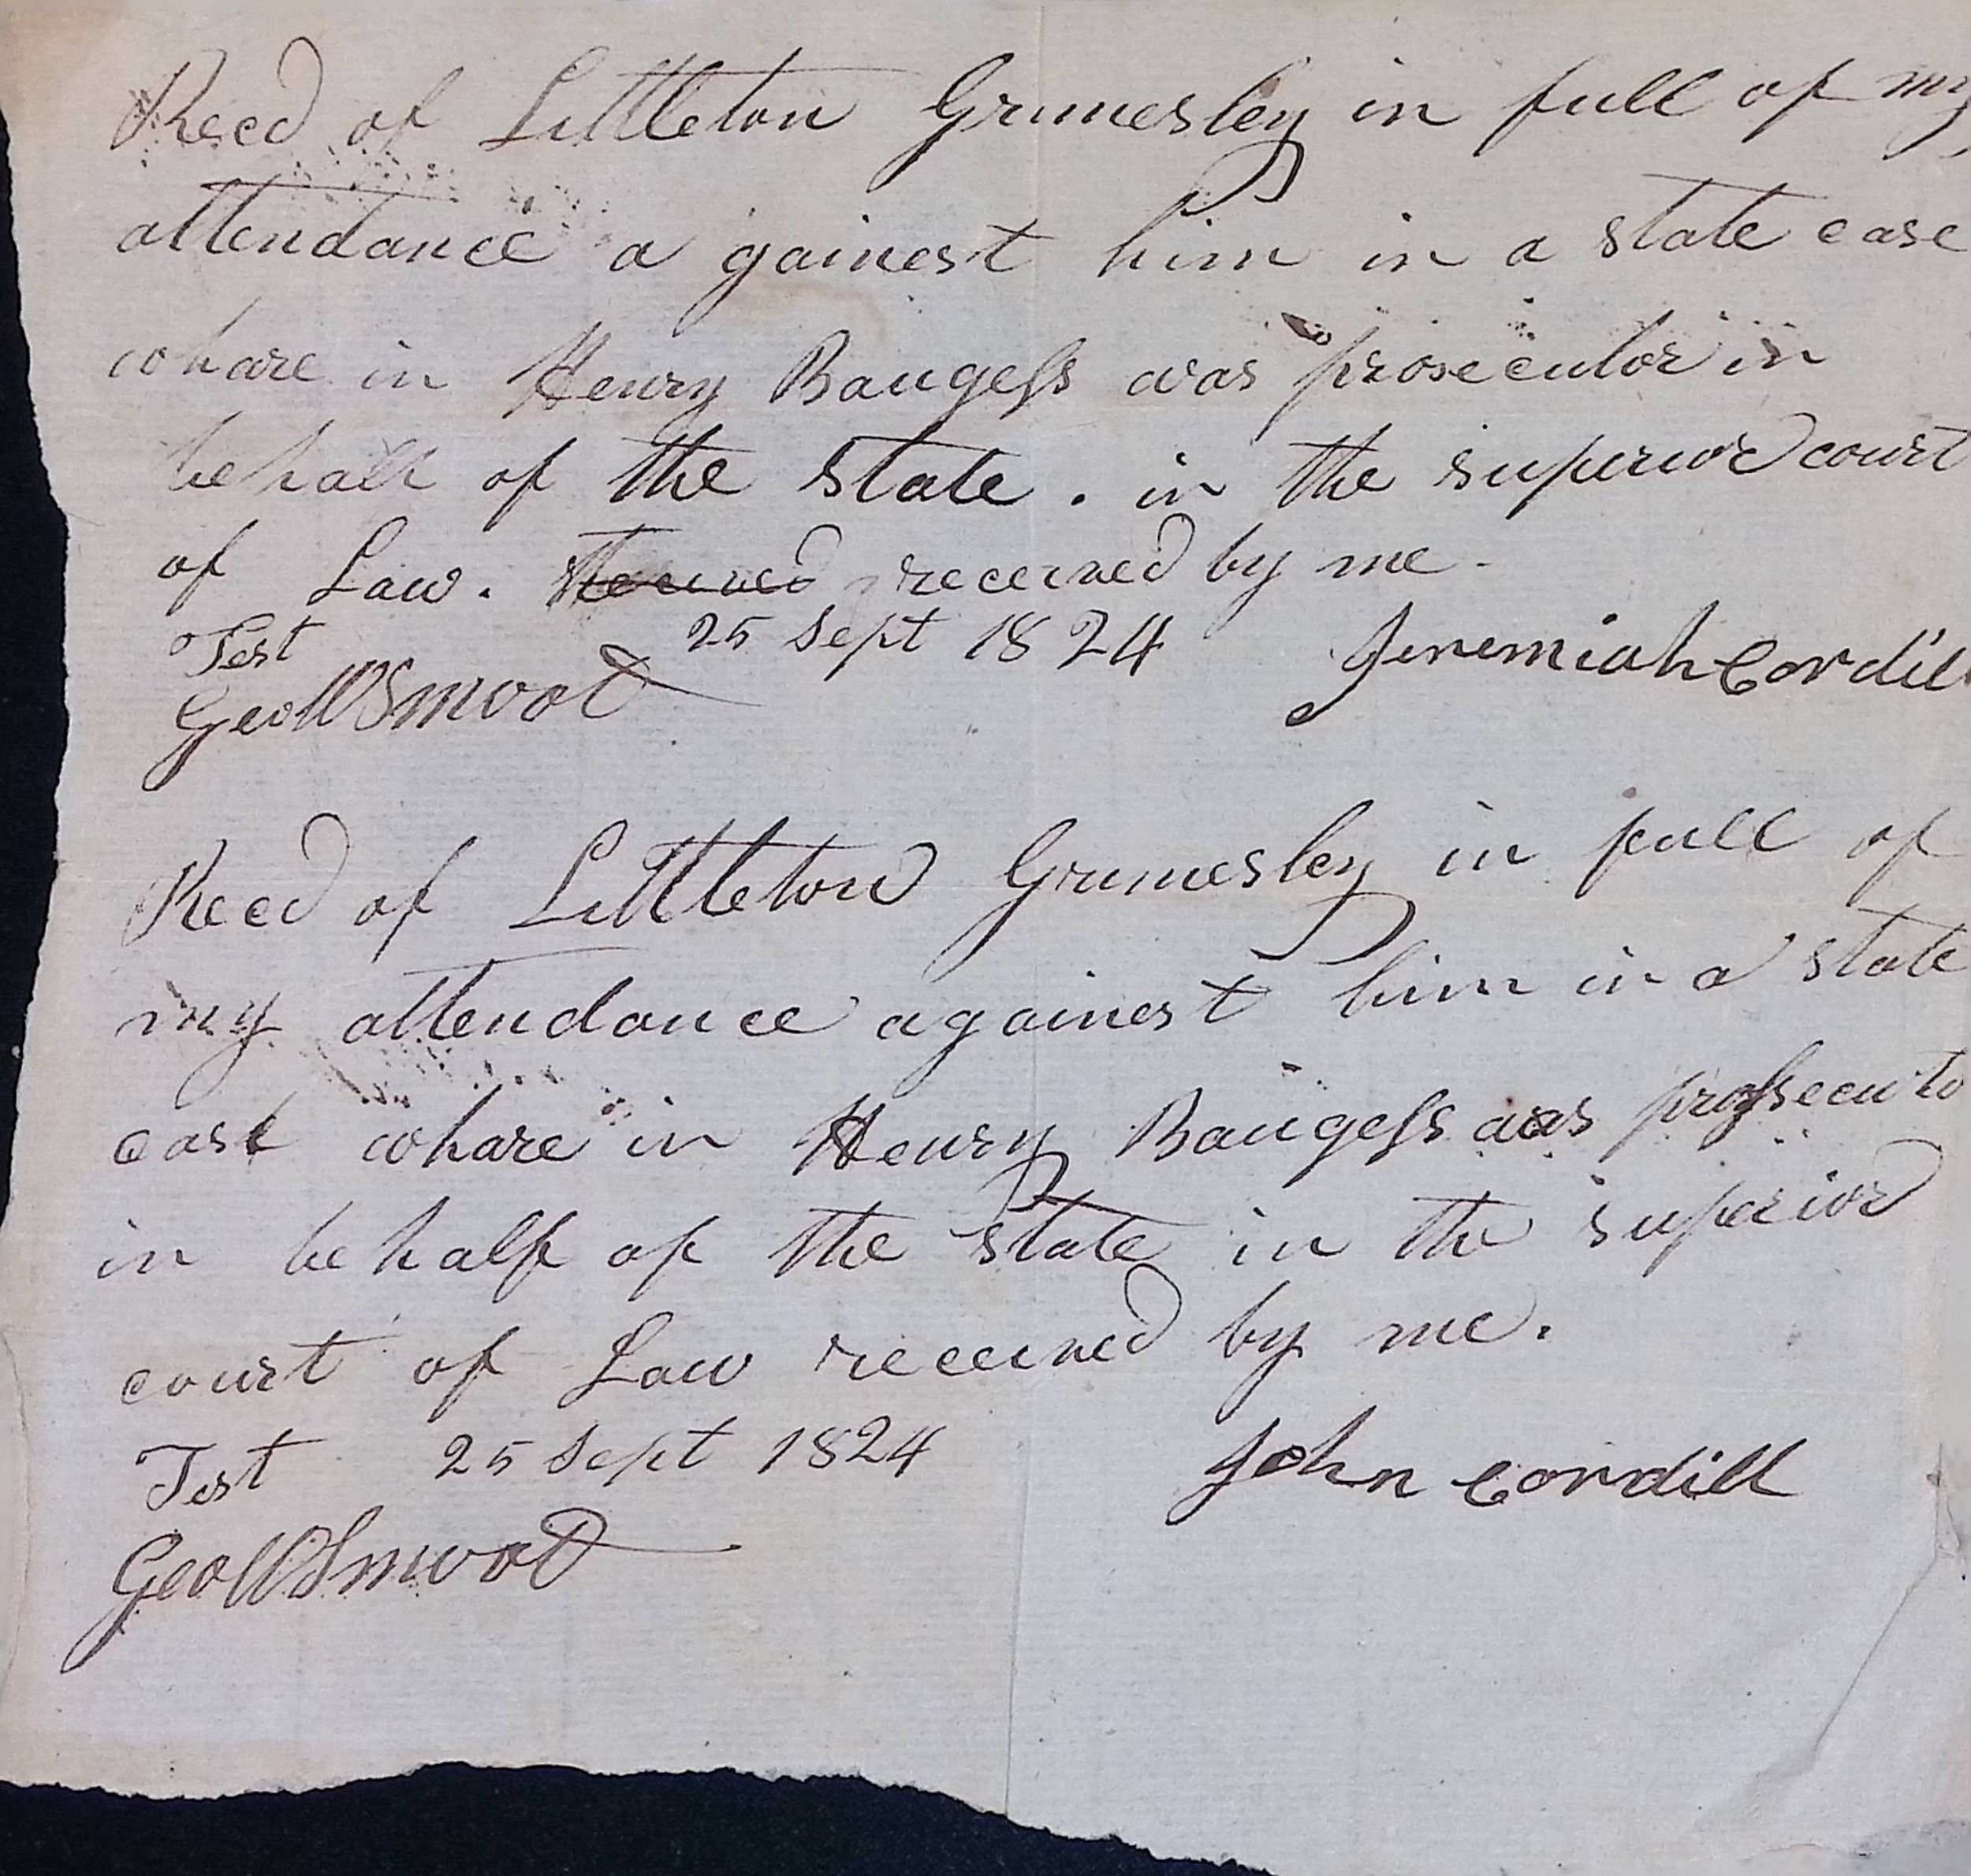 Recd of Littleton Grimesley in full of my
attendance a gainest him in a state case
whare in Henry Baugess was prosecutor in
behalf of the state . in the superior court
of Law . received by me -
Test 25 Sept 1824 Jeremiah Cordill
Geo W Smoot
Recd of Littleton Grimesley in full of
my attendance againest him in a state
case whare in Henry Baugess was prossecuto
in behalf of the state in the superior
court of Law received by me .
Test 25 Sept 1824 John Cordill
Geo W Smoot